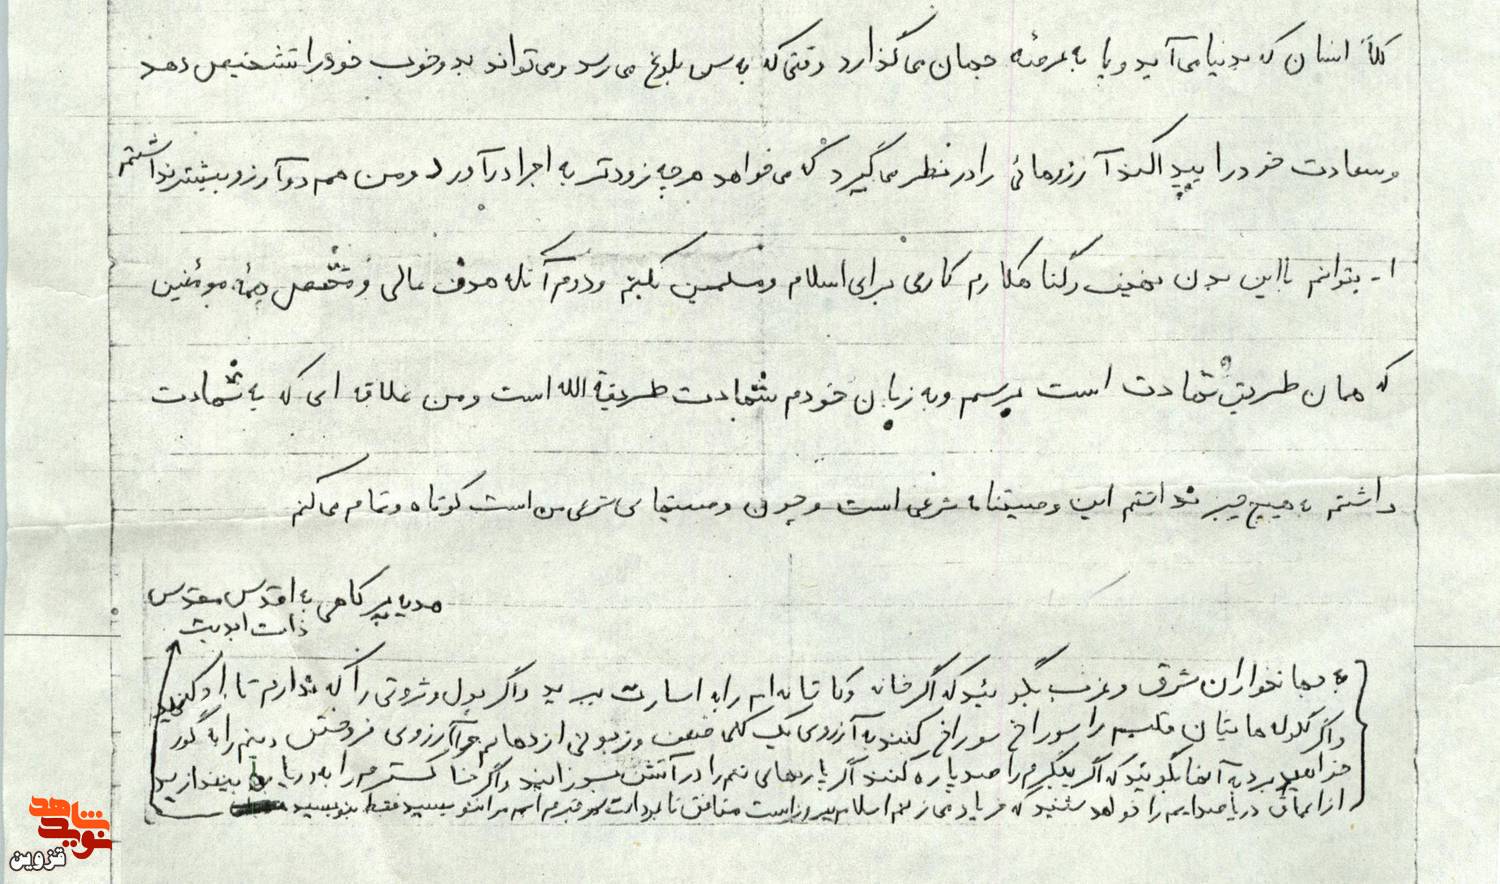 کلاً انسان که بدنیا می آید و پا به عرصه جهان می گذارد وقتی که به سن بلوغ می رسد و می تواند بد و خوب خود را تشخیص دهد
و سعادت خود را پیدا کند آرزوهائی را در نظر می گیرد که می خواهد هر چه زودتر به اجرا درآورد و من هم دو آرزو بیشتر نداشتم
۱- بتوانم با این بدن ضعیف و گناهکارم کاری برای اسلام و مسلمین بکنم و دوم آنکه هدف عالی و مشخص همه مومنین
که همان طریق شهادت است برسم و به زبان خودم شهادت طریقة الله است و من علاقه ای که به شهادت
داشتم به هیچ چیز نداشتم این وصیتنامه شرعی است و چون وصیتهای شرعی من است کوتاه و تمام می کنم
هدیه پر کاهی به اقدس مقدس
ذات ابدیت
به جهانخواران شرق و غرب بگوئید که اگر خانه و کاشانه ام را به اسارت ببرید و اگر پول و ثروتی را که ندارم تاراج کنید
و اگر گلوله هایتان قلبم را سوراخ سوراخ کنند به آرزوی یک کلمه ضعف و زبونی از دهانم آرزوی فروختن دینم را به گور
خواهید برد به آنها بگوئید که اگر پیکرم را صد پاره کنند اگر پارههای تنم را در آتش بسوزانید و اگر خاکسترم را به دریا بیندازید
از اعماق دریا صدایم را خواهد شنید که فریاد می زنم اسلام پیروز است منافق نابود است سر قبرم اسم مرا ننویسید فقط بنویسید
شاهد
نوید
قزوین